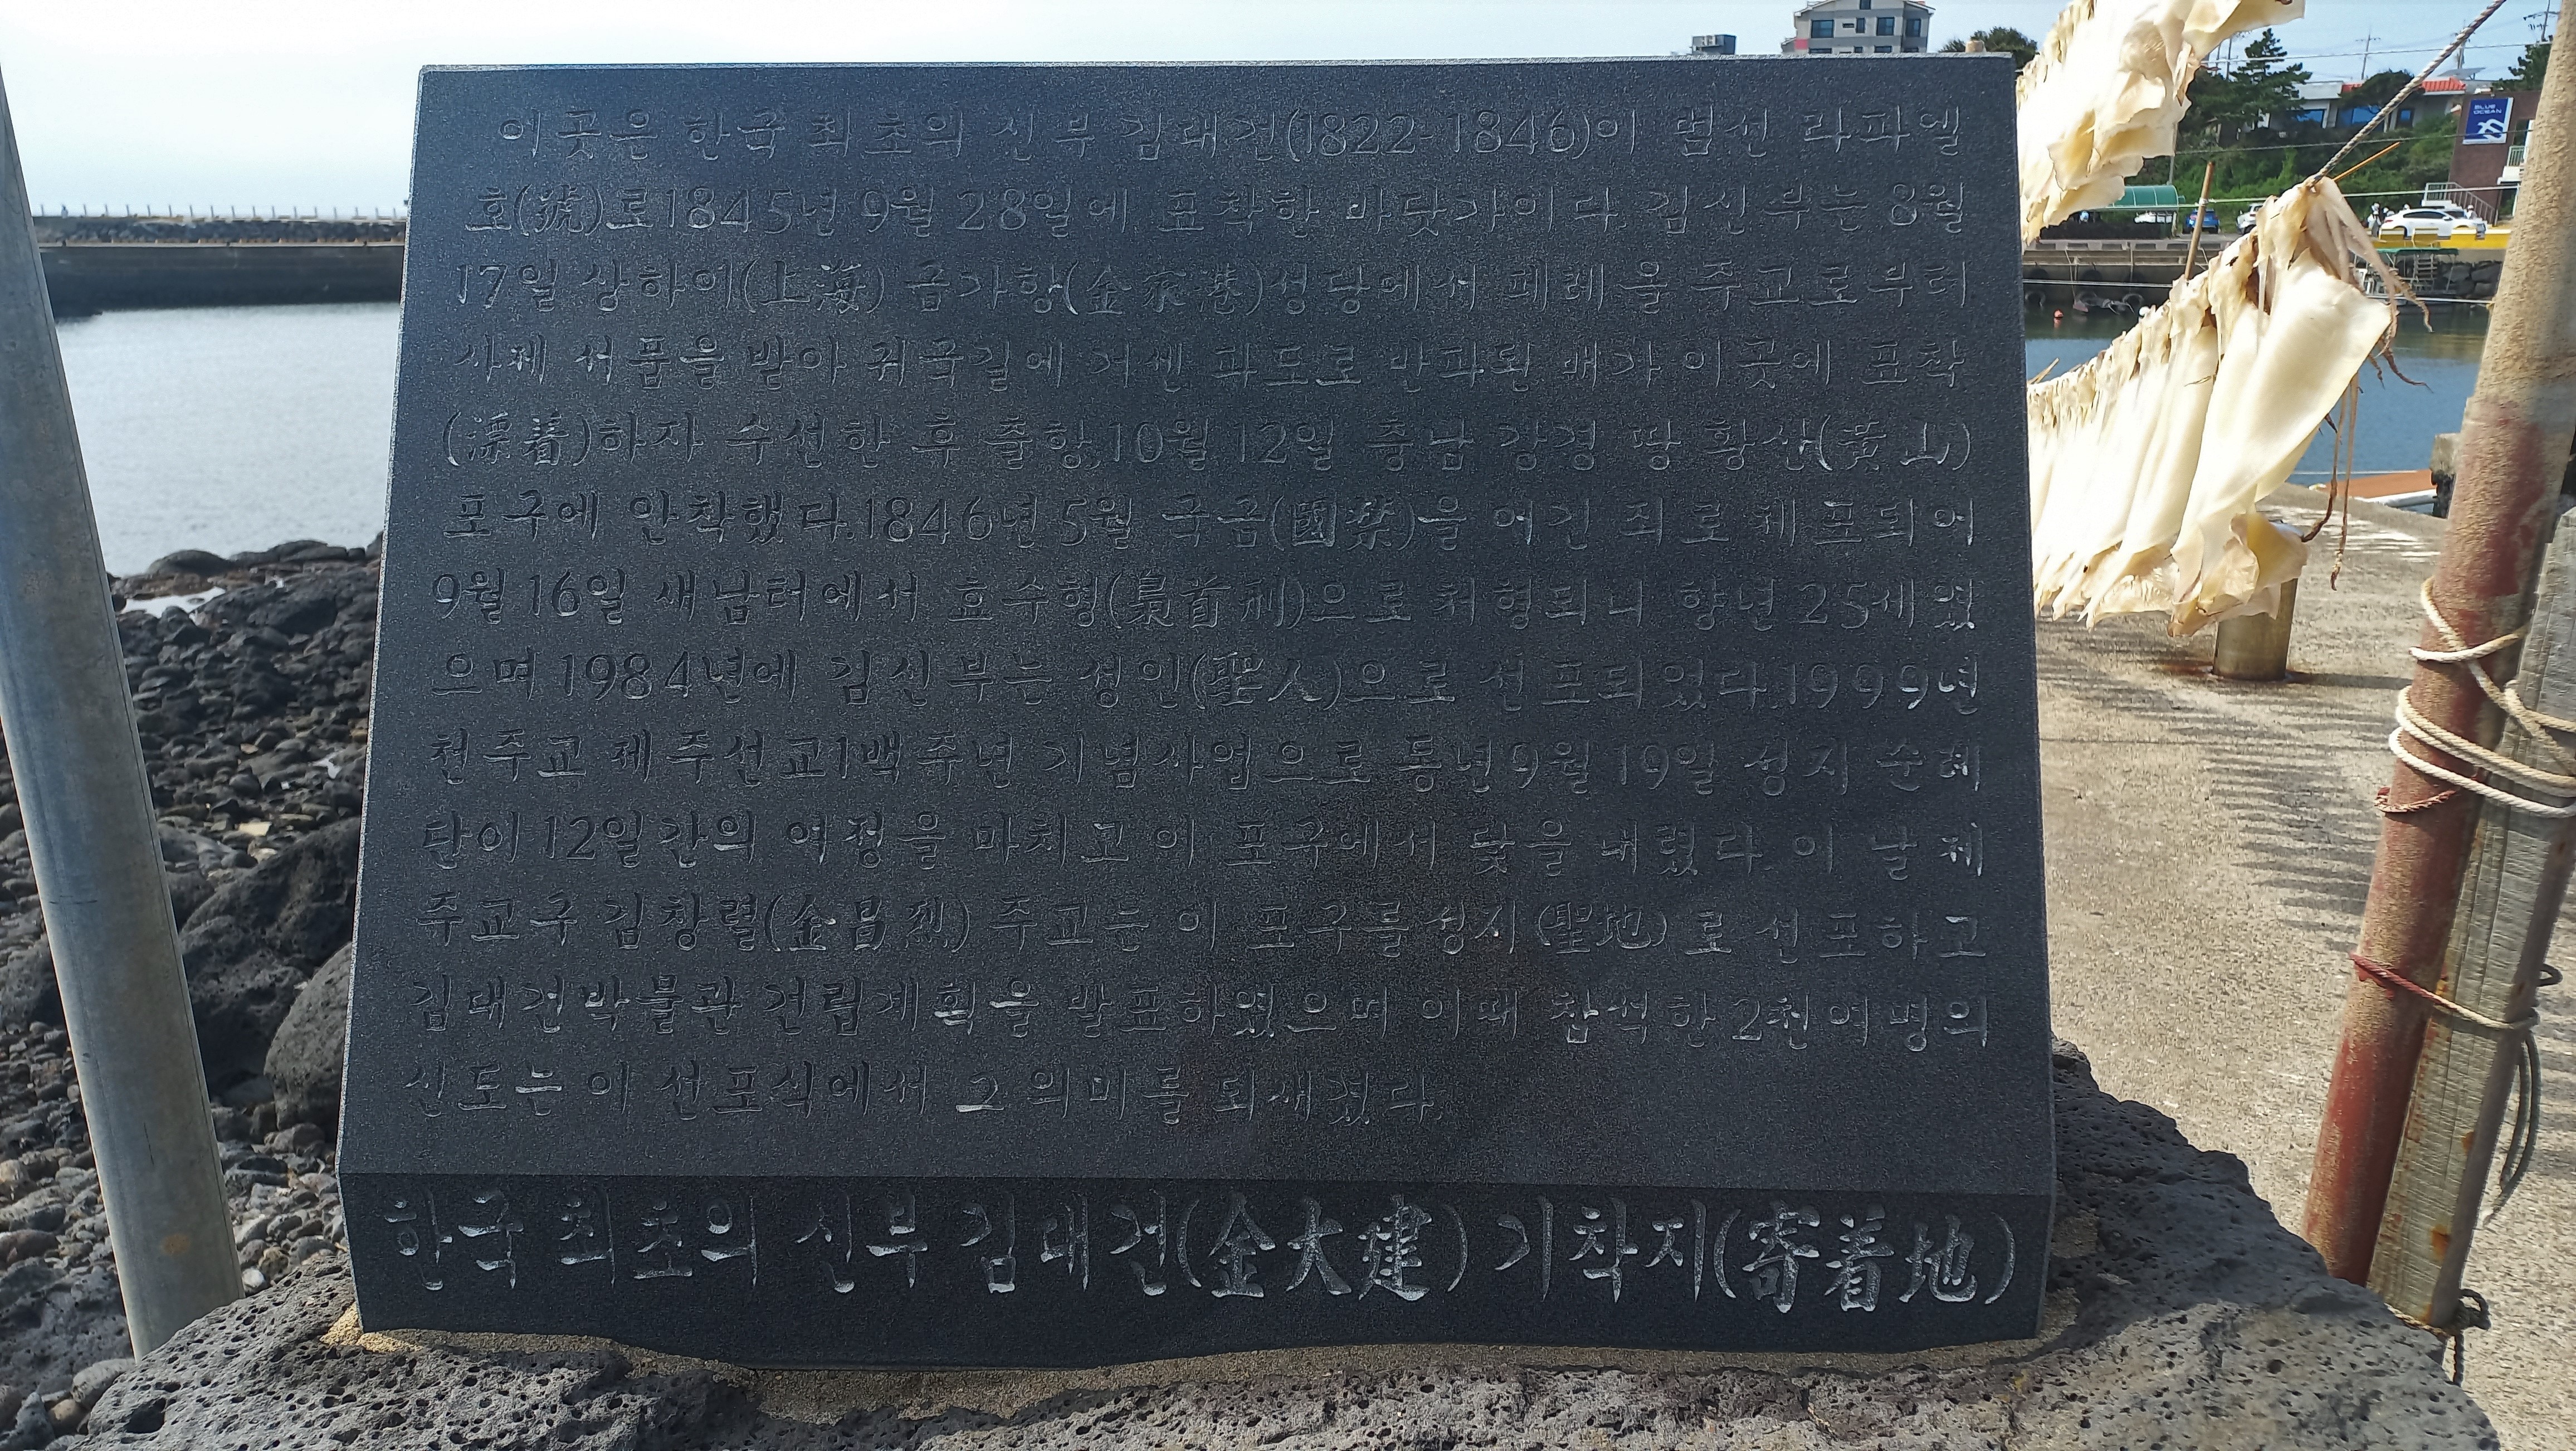 이곳은 한국 최초의 신부 김대건(1822-1846)이 범선 라파엘
호(號)로 1845년 9월 28일에 표착한 바닷가이다. 김신부는 8월
17일 상하이(上海) 금가항(金家港)성당에서 페레올 주교로부터
사제 서품을 받아 귀국길에 거센 파도로 반파된 배가 이곳에 표착
(漂着)하자 수선한 후 출항,10월 12일 충남 강경 땅 황산(黃山)
포구에 안착했다.1846년 5월 국금(國禁)을 어긴 죄로 체포되어
9월 16일 새남터에서 효수형(梟首刑)으로 처형되니 향년 25세였
으며 1984년에 김신부는 성인(聖人)으로 선포되었다.1999년
천주교 제주선교1백주년 기념사업으로 동년 9월 19일 성지 순례
단이 12일간의 여정을 마치고 이 포구에서 닻을 내렸다. 이 날 제
주교구 김창렬(金昌烈) 주교는 이 포구를 성지(聖地)로 선포하고
김대건박물관 건립계획을 발표하였으며 이때 참석한 2천여명의
신도는 이 선포식에서 그 의미를 되새겼다.
한국 최초의 신부 김대건(金大建) 기착지(寄着地)
BLUE
OCEAN